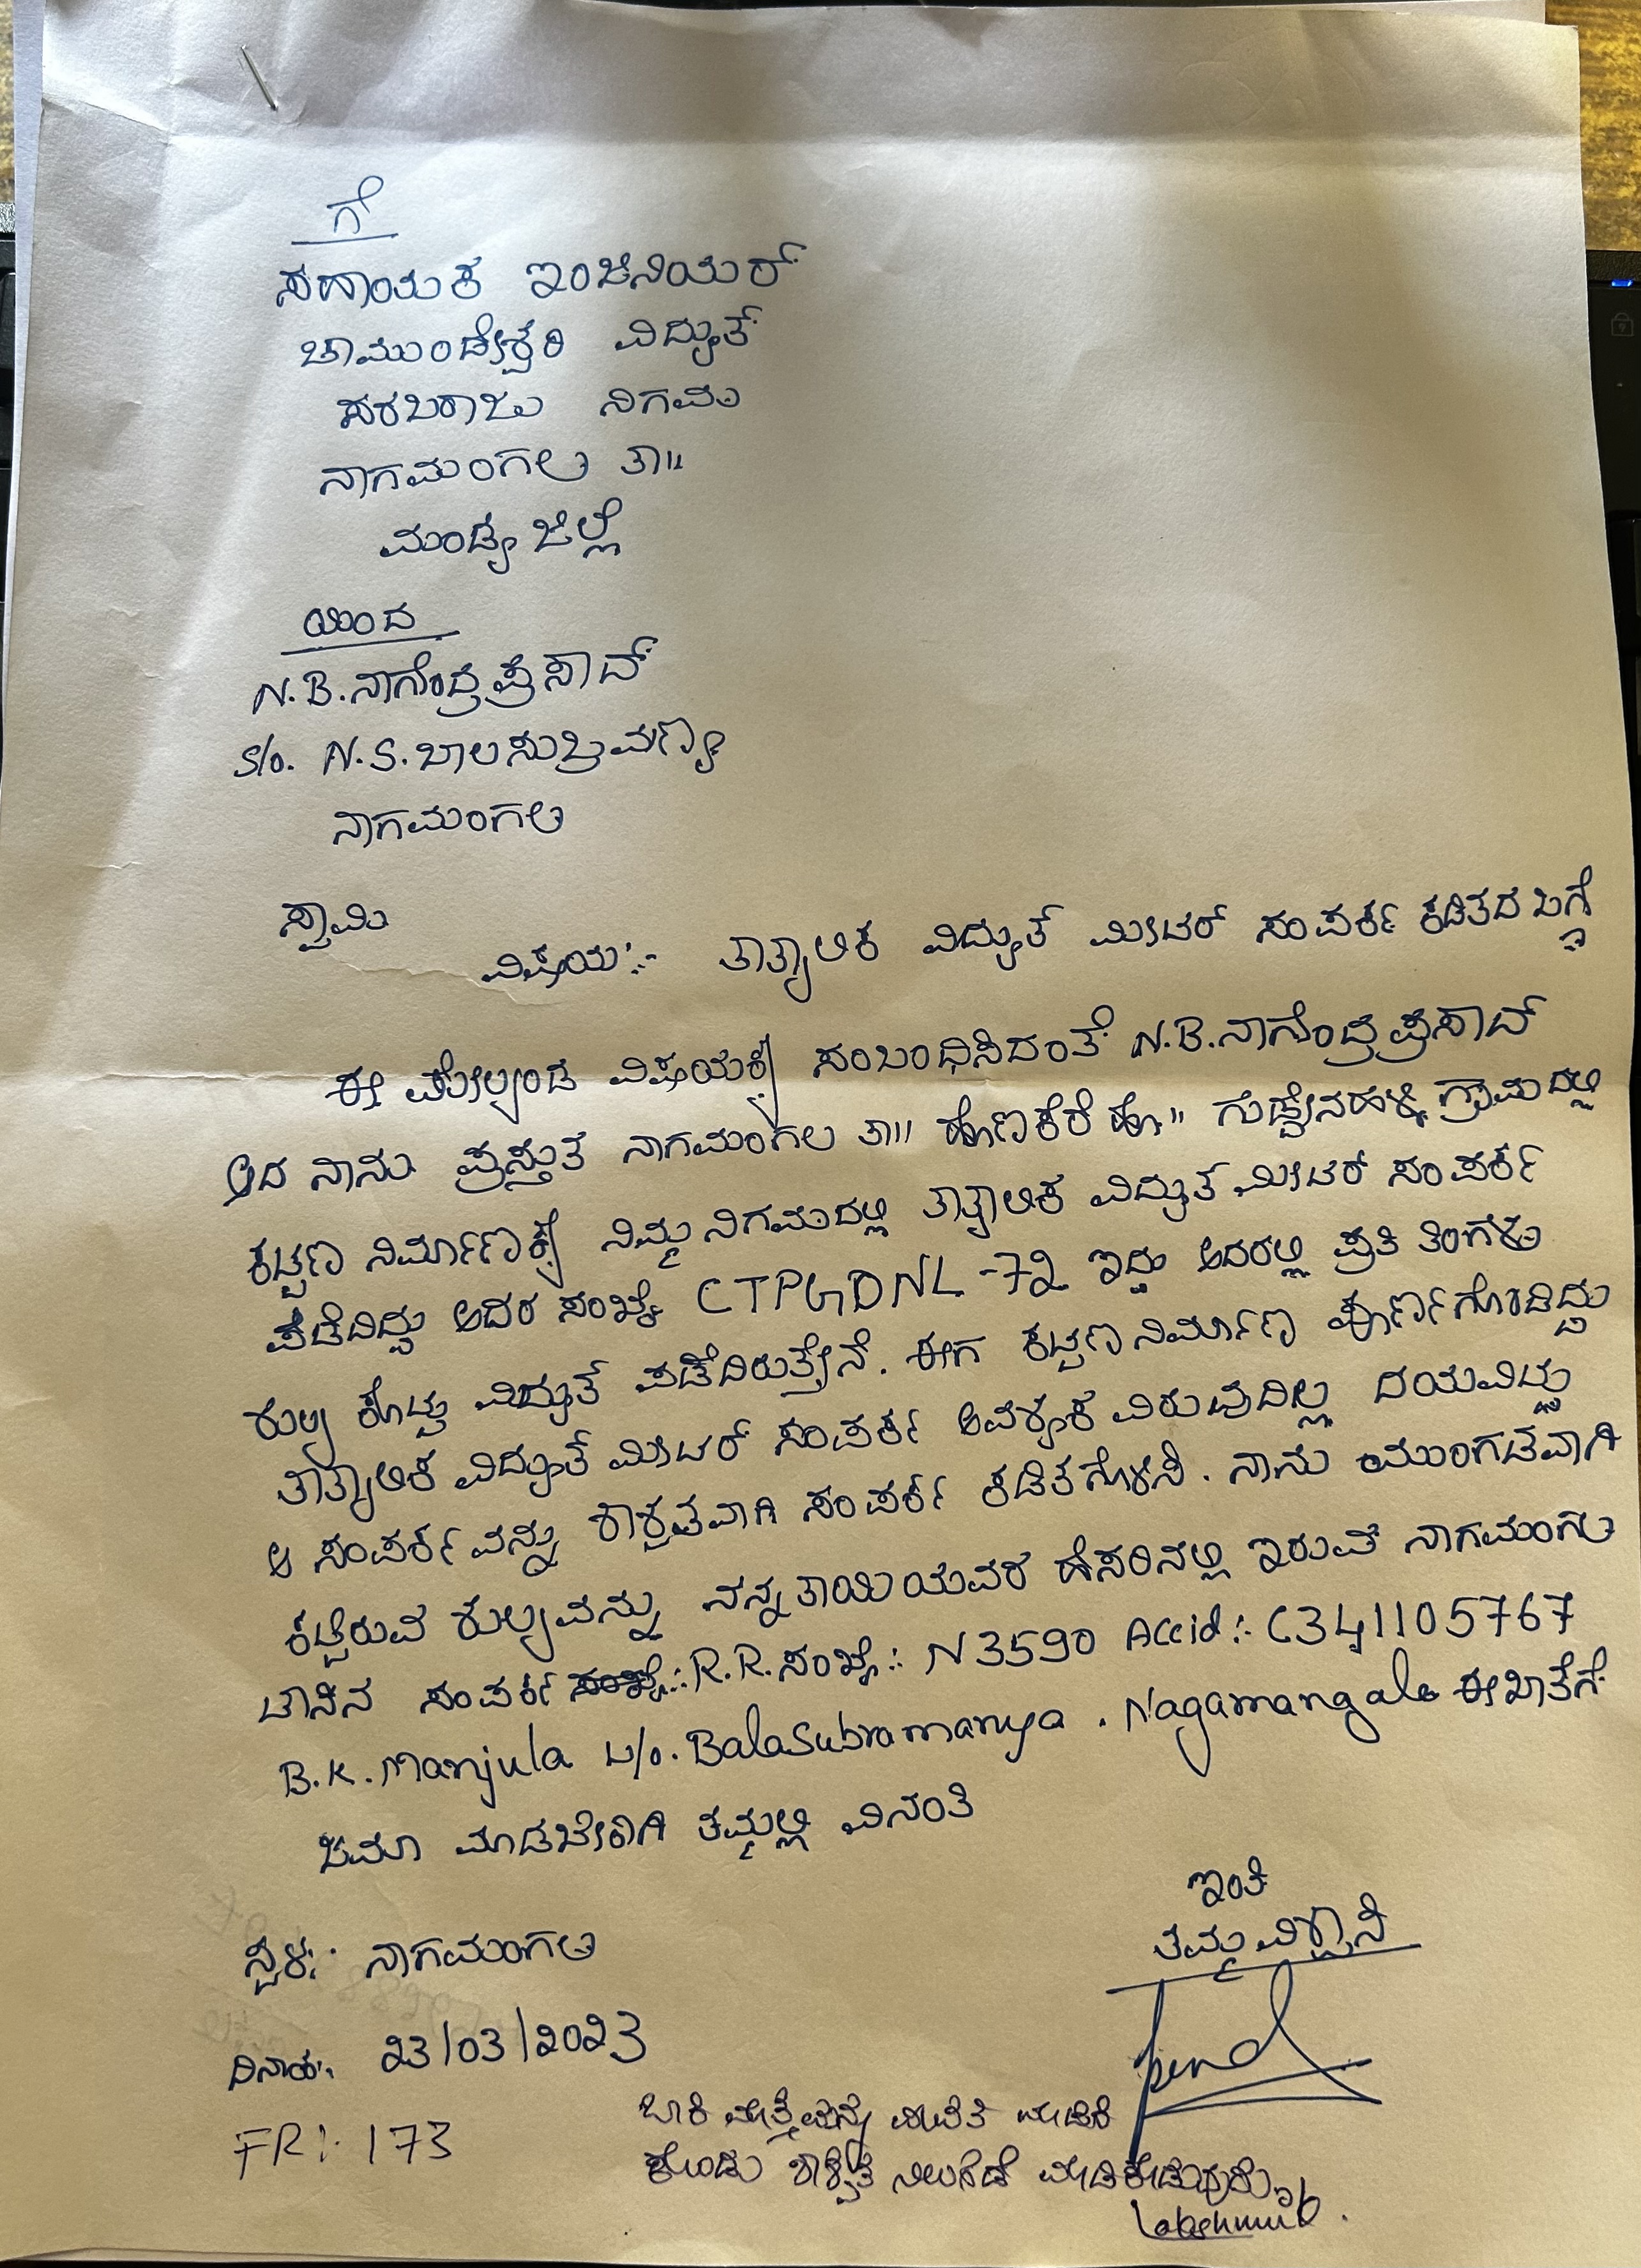 ಗೆ
ಸಹಾಯಕ ಇಂಜಿನಿಯರ್
ಚಾಮುಂಡೇಶ್ವರಿ ವಿದ್ಯುತ್
ಸರಬರಾಜು ನಿಗಮ
ನಾಗಮಂಗಲ ತಾ॥
ಮಂಡ್ಯ ಜಿಲ್ಲೆ
ಯಿಂದ
N.B.ನಾಗೇಂದ್ರ ಪ್ರಸಾದ್
S/o. N.S.ಬಾಲಸುಬ್ರಮಣ್ಯ
ನಾಗಮಂಗಲ
ಸ್ವಾಮಿ
ವಿಷಯ:- ತಾತ್ಕಾಲಿಕ ವಿದ್ಯುತ್ ಮೀಟರ್ ಸಂಪರ್ಕ ಕಡಿತದ ಬಗ್ಗೆ
ಈ ಮೇಲ್ಕಂಡ ವಿಷಯಕ್ಕೆ ಸಂಬಂಧಿಸಿದಂತೆ N.B.ನಾಗೇಂದ್ರ ಪ್ರಸಾದ್
ಆದ ನಾನು ಪ್ರಸ್ತುತ ನಾಗಮಂಗಲ ತಾ॥ ಹೊಣಕೆರೆ ಹೋ॥ ಗುಡ್ಡೇನಹಳ್ಳಿ ಗ್ರಾಮದಲ್ಲಿ
ಕಟ್ಟಣ ನಿರ್ಮಾಣಕ್ಕೆ ನಿಮ್ಮ ನಿಗಮದಲ್ಲಿ ತಾತ್ಕಾಲಿಕ ವಿದ್ಯುತ್ ಮೀಟರ್ ಸಂಪರ್ಕ
ಪಡೆದಿದ್ದು ಅದರ ಸಂಖ್ಯೆ CTPGDNL-72 ಇದ್ದು ಅದರಲ್ಲಿ ಪ್ರತಿ ತಿಂಗಳು
ಶುಲ್ಕ ಕೊಟ್ಟು ವಿದ್ಯುತ್ ಪಡೆದಿರುತ್ತೇನೆ. ಈಗ ಕಟ್ಟಣ ನಿರ್ಮಾಣ ಪೂರ್ಣಗೊಂಡಿದ್ದು
ತಾತ್ಕಾಲಿಕ ವಿದ್ಯುತ್ ಮೀಟರ್ ಸಂಪರ್ಕ ಅವಶ್ಯಕ ವಿರುವುದಿಲ್ಲ ದಯವಿಟ್ಟು
ಆ ಸಂಪರ್ಕವನ್ನು ಶಾಶ್ವತವಾಗಿ ಸಂಪರ್ಕ ಕಡಿತಗೊಳಿಸಿ. ನಾನು ಮುಂಗಡವಾಗಿ
ಕಟ್ಟಿರುವ ಶುಲ್ಕವನ್ನು ನನ್ನ ತಾಯಿಯವರ ಹೆಸರಿನಲ್ಲಿ ಇರುವ ನಾಗಮಂಗಲ
ಟೌನಿನ ಸಂಪರ್ಕ R.R.ಸಂಖ್ಯೆ:- N3590 Accid:- C341105767
B.K.Manjula w/o. BalaSubramanya. Nagamangala ಈ ಖಾತೆಗೆ
ಜಮಾ ಮಾಡಬೇಕಾಗಿ ತಮ್ಮಲ್ಲಿ ವಿನಂತಿ
ಇಂತಿ
ತಮ್ಮ ವಿಶ್ವಾಸಿ
ಸ್ಥಳ:- ನಾಗಮಂಗಲ
ದಿನಾಂಕ:- 23/03/2023
FR:- 173
ಬಾಕಿ ಮಾಡಿ
ಕೊಂಡು ಶಾಶ್ವತ ನಿಲುಗಡೆ